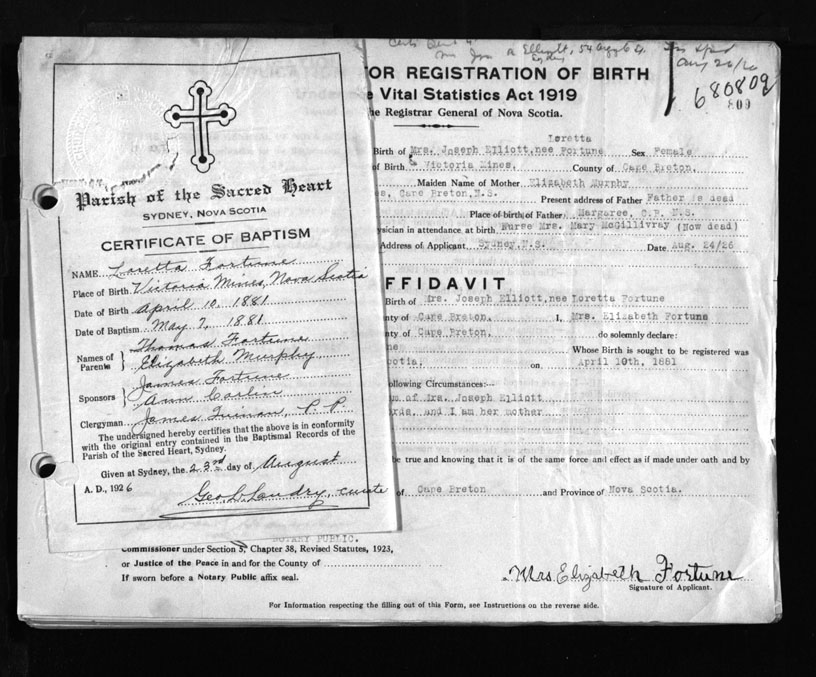 Parish of the Sacred Heart
SYDNEY, NOVA SCOTIA
CERTIFICATE OF BAPTISM
NAME Loretta Fortune
Place of Birth Victoria Mines, Nova Scotia
Date of Birth April 10, 1881
Date of Baptism May 7, 1881
Names of Parents } Thomas Fortune
Elizabeth Murphy
Sponsors } James Fortune
Ann Carlin
Clergyman James Quinan, P. P.
The undersigned hereby certifies that the above is in conformity
with the original entry contained in the Baptismal Records of the
Parish of the Sacred Heart, Sydney.
Given at Sydney, the 23rd day of August
A. D., 1926
Geo Landry, curate
54 Argyle
Sydney
Aug 26/26
680809
809
OR REGISTRATION OF BIRTH
Vital Statistics Act 1919
he Registrar General of Nova Scotia.
Loretta
Birth of Mrs. Joseph Elliott, nee Fortune Sex Female
of Birth Victoria Mines, County of Cape Breton.
Maiden Name of Mother Elizabeth Murphy
es, Cape Breton, N.S. Present address of Father Father is dead
Place of birth of Father Margaree, C.B. N.S.
ysician in attendance at birth Nurse Mrs. Mary McGillivray (Now dead)
Address of Applicant Sydney, N.S. Date Aug. 24/26
FFIDAVIT
Birth of Mrs. Joseph Elliott, nee Loretta Fortune
nty of Cape Breton. I, Mrs. Elizabeth Fortune
nty of Cape Breton. do solemnly declare:
ne Whose Birth is sought to be registered was
cotia, on April 10th, 1881
ollowing Circumstances:—
m of Mrs. Joseph Elliott
ords, and I am her mother
be true and knowing that it is of the same force and effect as if made under oath and by
of Cape Breton and Province of Nova Scotia.
NOTARY PUBLIC.
Commissioner under Section 5, Chapter 38, Revised Statutes, 1923,
or Justice of the Peace in and for the County of
If sworn before a Notary Public affix seal.
Mrs. Elizabeth Fortune
Signature of Applicant.
For Information respecting the filling out of this Form, see Instructions on the reverse side.